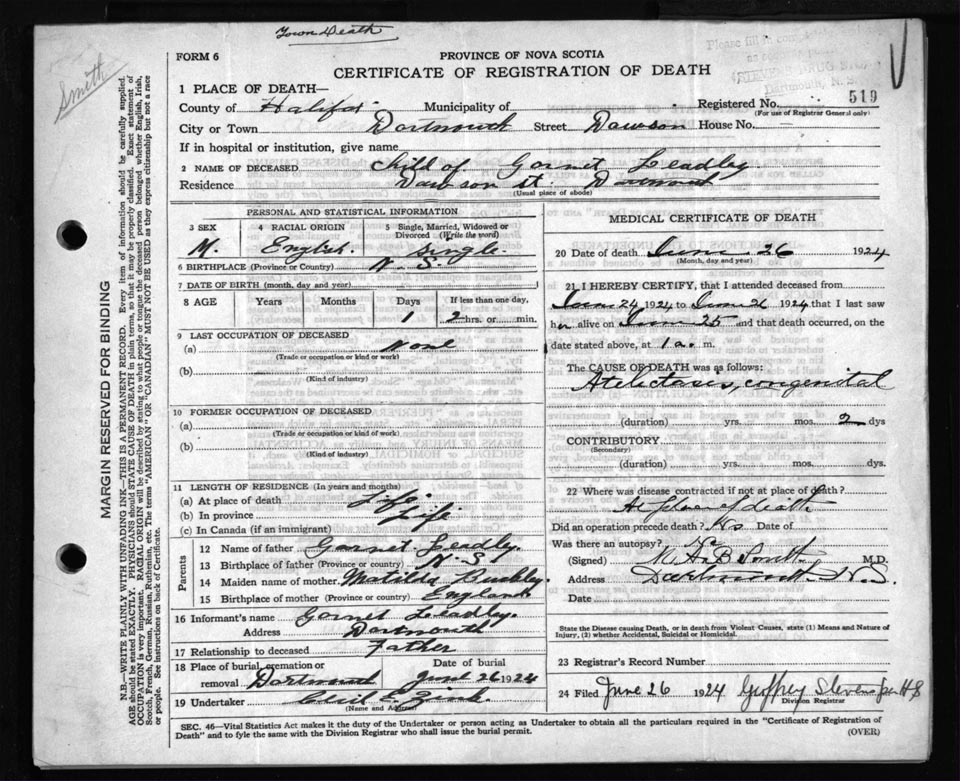 Town Death
FORM 6
PROVINCE OF NOVA SCOTIA
CERTIFICATE OF REGISTRATION OF DEATH
Smith
Please fill in
Dartmouth, N. S.
1 PLACE OF DEATH—
County of Halifax Municipality of Registered No. 519
(For use of Registrar General only)
City or Town Dartmouth Street Dawson House No.—
If in hospital or institution, give name
2 NAME OF DECEASED Child of Garnet Leadley
Residence Dawson St. Dartmouth
(Usual place of abode)
PERSONAL AND STATISTICAL INFORMATION
3 SEX 4 RACIAL ORIGIN 5 Single, Married, Widowed or Divorced (Write the word)
M. English. single.
6 BIRTHPLACE (Province or Country) N. S.
7 DATE OF BIRTH (month, day and year)
8 AGE Years Months Days If less than one day,
1 2 hrs. or min.
9 LAST OCCUPATION OF DECEASED
(a) None
(Trade or occupation or kind or work)
(b)
(Kind of industry)
10 FORMER OCCUPATION OF DECEASED
(a)
(Trade or occupation or kind of work)
(b)
(Kind of industry)
11 LENGTH OF RESIDENCE (In years and months)
(a) At place of death Life
(b) In province Life
(c) In Canada (if an immigrant)
Parents
12 Name of father Garnet Leadley.
13 Birthplace of father (Province or country) N. S.
14 Maiden name of mother Matilda
15 Birthplace of mother (Province or country) England
16 Informant's name Garnet Leadley.
Address Dartmouth
17 Relationship to deceased Father
18 Place of burial, cremation or removal Dartmouth Date of burial June 26 1924
19 Undertaker Cecil E. Zink
(Name and Address)
MEDICAL CERTIFICATE OF DEATH
20 Date of death June 26 1924
(Month, day and year)
21 I HEREBY CERTIFY, that I attended deceased from
June 24 1924 to June 26 1924 that I last saw
him alive on June 25 and that death occurred, on the
date stated above, at 1 a. m.
The CAUSE OF DEATH was as follows:
Atelectasis, congenital
(duration) yrs. mos. 2 dys
CONTRIBUTORY
(Secondary)
(duration) yrs. mos. dys.
22 Where was disease contracted if not at place of death?
At place of death
Did an operation precede death? No Date of
Was there an autopsy? No
(Signed) Smith, M.D.
Address Dartmouth N. S.
Date
State the Disease causing Death, or in death from Violent Causes, state (1) Means and Nature of
Injury, (2) whether Accidental, Suicidal or Homicidal.
23 Registrar's Record Number
24 Filed June 26 1924 Geoffrey Stevens per HS
Division Registrar
SEC. 46—Vital Statistics Act makes it the duty of the Undertaker or person acting as Undertaker to obtain all the particulars required in the "Certificate of Registration of
Death" and to fyle the same with the Division Registrar who shall issue the burial permit.
(OVER)
MARGIN RESERVED FOR BINDING
N.B.—WRITE PLAINLY WITH UNFADING INK—THIS IS A PERMANENT RECORD. Every item of information should be carefully supplied.
AGE should be stated EXACTLY. PHYSICIANS should STATE CAUSE OF DEATH in plain terms, so that it may be properly classified. Exact statement of
OCCUPATION is very important. RACIAL ORIGIN will be described by stating to what people or tongue the deceased person belonged whether English, Irish,
Scotch, French, German, Russian, Ruthenian, etc. The terms "AMERICAN" OR "CANADIAN" MUST NOT BE USED as they express citizenship but not a race
or people. See instructions on back of Certificate.